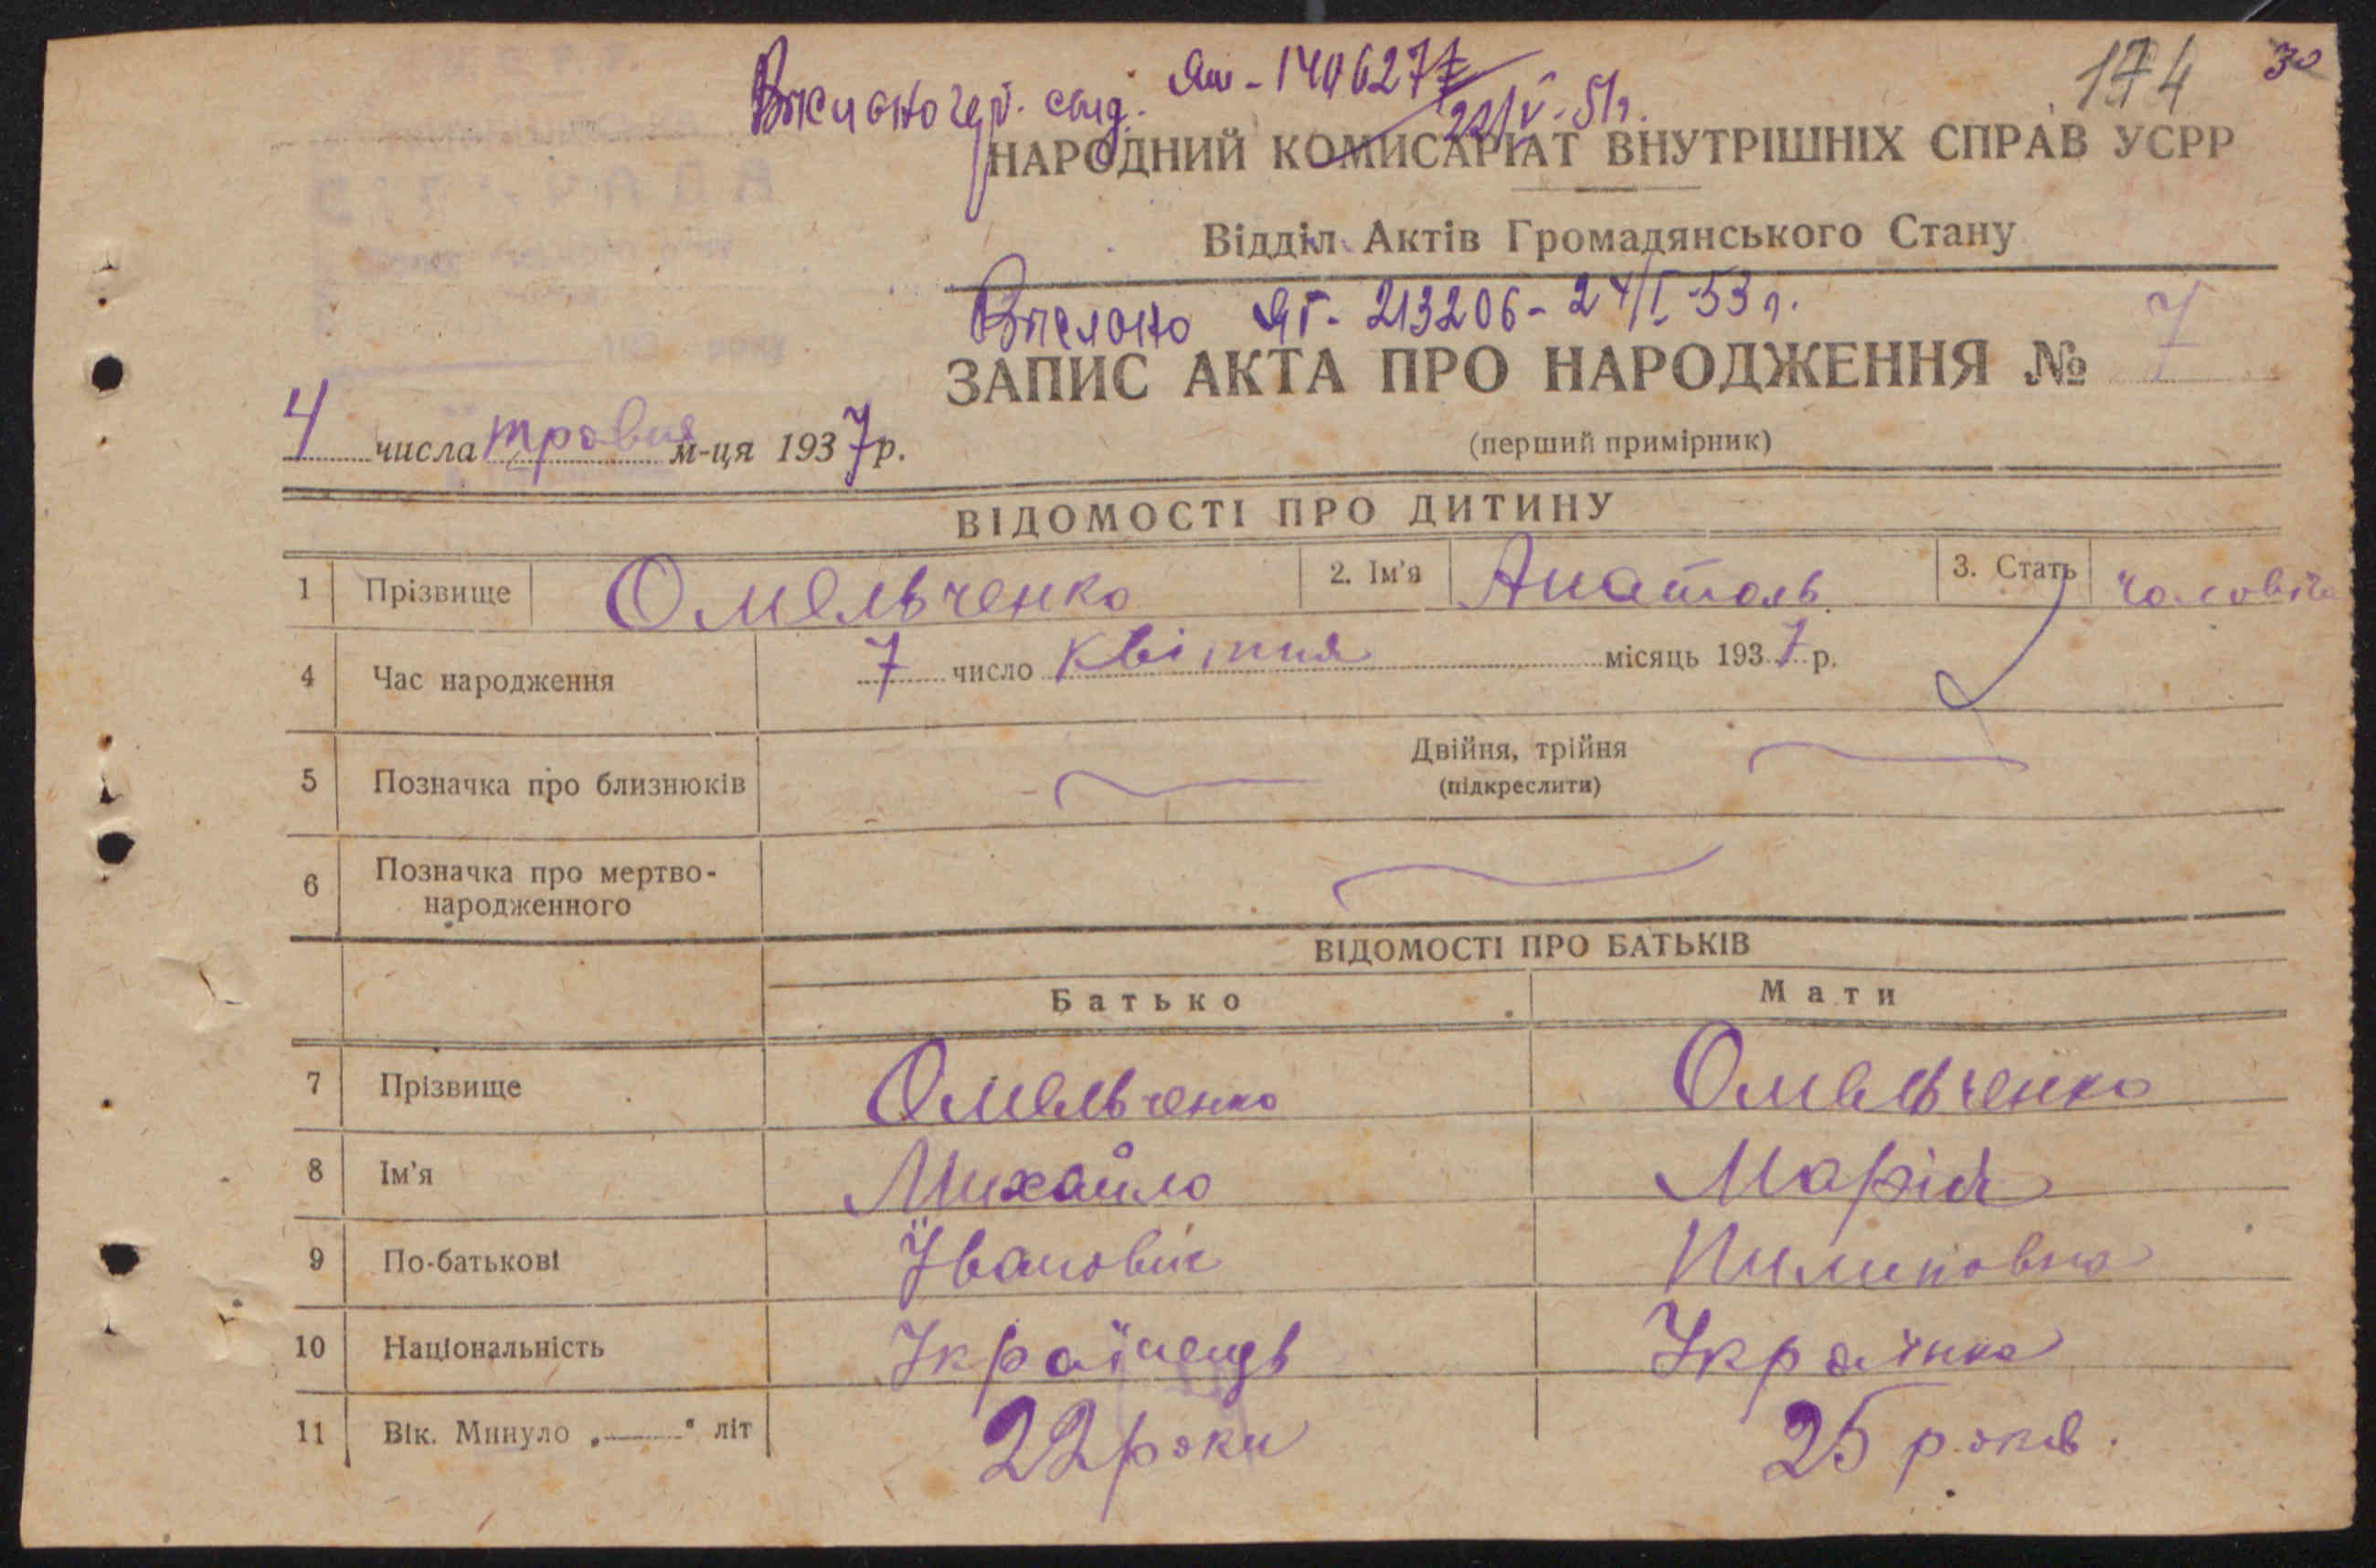 174 30
Вислано свід. ЯШ-1406277
22/V-51г.
НАРОДНИЙ КОМИСАРІАТ ВНУТРІШНІХ СПРАВ УСРР
Відділ Актів Громадянського Стану
Вислано ЯГ-213206-24/I-53г.
ЗАПИС АКТА ПРО НАРОДЖЕННЯ № 7
(перший примірник)
4 числа тровня м-ця 1937 р.
ВІДОМОСТІ ПРО ДИТИНУ
1 Прізвище Омельченко 2. Ім'я Анатоль 3. Стать чоловіча
4 Час народження 7 число квітня місяць 1937 р.
5 Позначка про близнюків Двійня, трійня
(підкреслити)
6 Позначка про мертво-
народженного
ВІДОМОСТІ ПРО БАТЬКІВ
Батько Мати
7 Прізвище Омельченко Омельченко
8 Ім'я Михайло Марія
9 По-батькові Івановіч Пилиповна
10 Національність Українець Українка
11 Вік. Минуло „ " літ 22 роки 25 років.